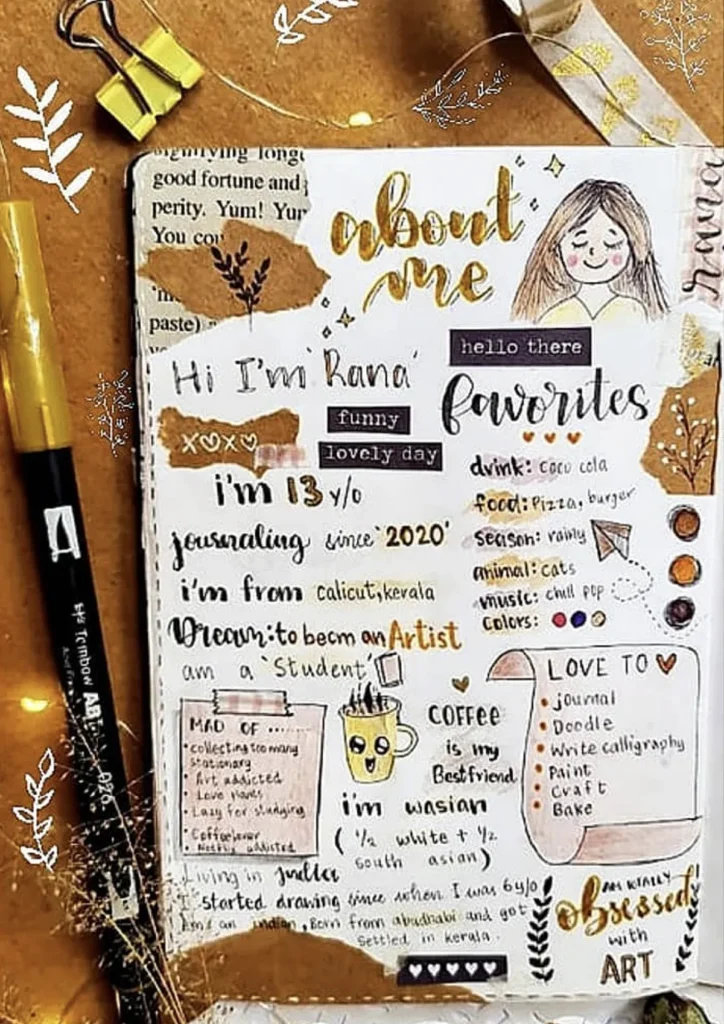 good fortune and
perity. Yum!
You
paste)
about
me
rana
hello there
Hi I'm 'Rana'
favorites
funny
xoxo
lovely day
i'm 13 y/o
journaling since '2020'
i'm from calicut,kerala
Dream:to becm an Artist
am a 'Student'
drink: coco cola
food: Pizza, burger
season: rainy
animal: cats
music: chill pop
colors:
MAD OF ........
• collecting too many
stationary
• Art addicted
• Love
• Lazy for studying
• Coffeelover
addicted
COFFEE
is my
Bestfriend
LOVE TO
• journal
• Doodle
• Write calligraphy
• Paint
• Craft
• Bake
i'm wasian
( ½ white + ½
south asian)
Living in
I started drawing since when I was 6y/o
and an indian, Born from abudhabi and got
settled in kerala.
AM TOTALLY
obsessed
with
ART
Tombow AB